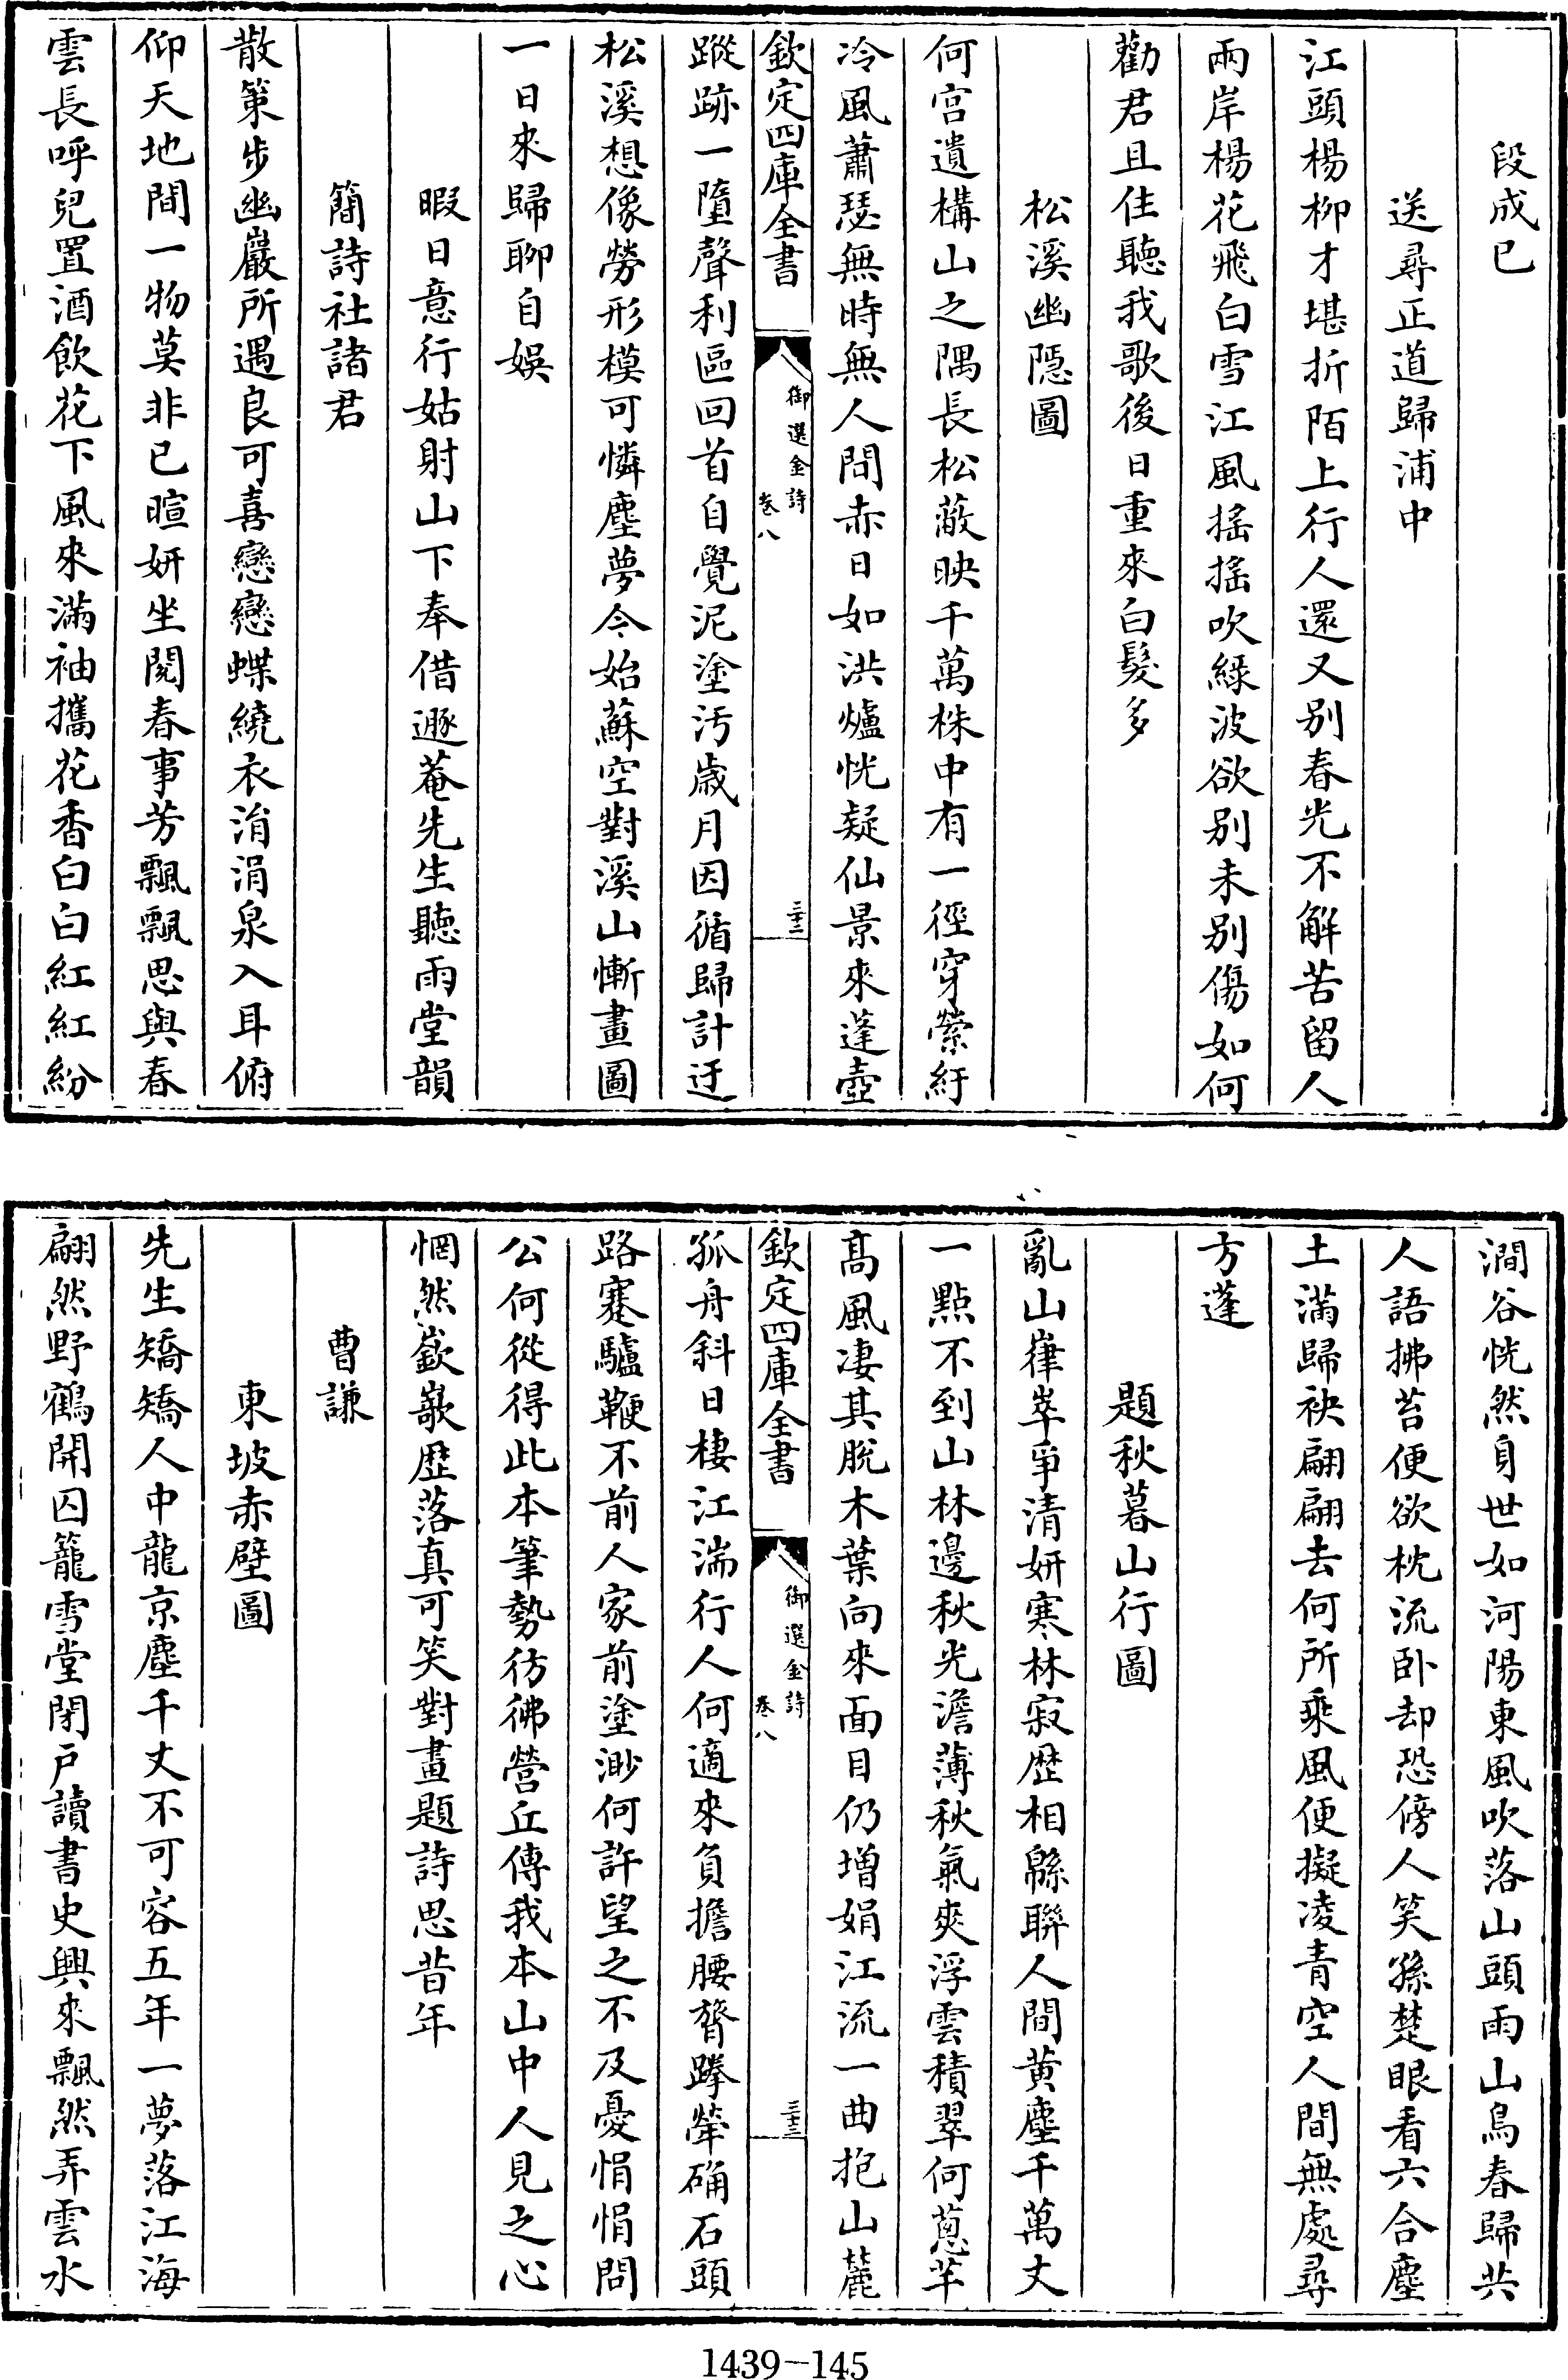 段成已
送尋正道歸浦中
江頭楊柳才堪折陌上行人還又别春光不解苦留人
兩岸楊花飛白雪江風揺揺吹緑波欲别未别傷如何
勸君且住聽我歌後日重來白髮多
松溪幽隱圖
何宫遺構山之隅長松蔽映千萬株中有一徑穿縈紆
冷風蕭瑟無時無人間赤日如洪爐恍疑仙景來蓬壺
欽定四庫全書
御選金詩
卷八
三十二
蹤跡一墮聲利區回首自覺泥塗汚歲月因循歸計迂
松溪想像勞形模可憐塵夢今始蘇空對溪山慚畫圖
一日來歸聊自娯
暇日意行姑射山下奉借遯菴先生聽雨堂韻
簡詩社諸君
散策步幽巖所遇良可喜戀戀蝶繞衣涓涓泉入耳俯
仰天地間一物莫非已暄妍坐閲春事芳飄飄思與春
雲長呼兒置酒飲花下風來滿袖攜花香白白紅紅紛
澗谷恍然身世如河陽東風吹落山頭雨山鳥春歸共
人語拂苔便欲枕流卧却恐傍人笑孫楚眼看六合塵
土滿歸袂翩翩去何所乘風便擬凌青空人間無處尋
方蓬
題秋暮山行圖
亂山嵂崒爭清妍寒林寂歴相緜聯人間黄塵千萬丈
一點不到山林邊秋光澹薄秋氣爽浮雲積翠何蔥芊
髙風凄其脱木葉向來面目仍增娟江流一曲抱山麓
欽定四庫全書
御選金詩
卷八
三十三
孤舟斜日棲江湍行人何適來負擔腰膂踡犖确石頭
路蹇驢鞭不前人家前塗渺何許望之不及憂悁悁問
公何從得此本筆勢彷彿營丘傳我本山中人見之心
惘然嶔嶔歴落真可笑對畫題詩思昔年
曹謙
東坡赤壁圖
先生矯矯人中龍京塵千丈不可容五年一夢落江海
翩然野鶴開囚籠雪堂閉戸讀書史興來飄然弄雲水
1439-145